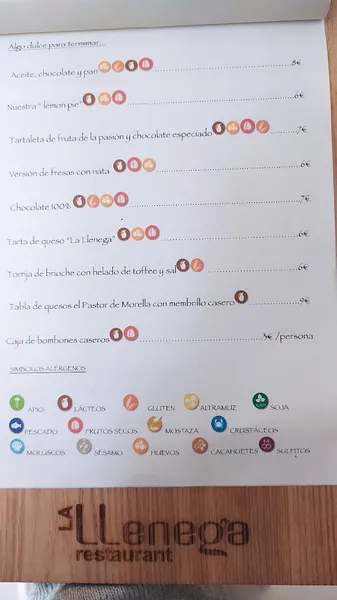 Algo dulce para terminar...
Aceite, chocolate y pan 8€
Nuestra " lemon pie" 6€
Tartaleta de fruta de la pasión y chocolate especiado 7€
Versión de fresas con nata 6€
Chocolate 100% 7€
Tarta de queso "La Llenega" 6€
Torrija de brioche con helado de toffee y sal 6€
Tabla de quesos el Pastor de Morella con membrillo casero 9€
Caja de bombones caseros 3€ /persona
SIMBOLOS ALERGENOS
APIO LÁCTEOS GLUTEN ALTRAMUZ SOJA
PESCADO FRUTOS SECOS MOSTAZA CRUSTÁCEOS
MOLUSCOS SÉSAMO HUEVOS CACAHUETES SULFITOS
LA LLenega
restaurant